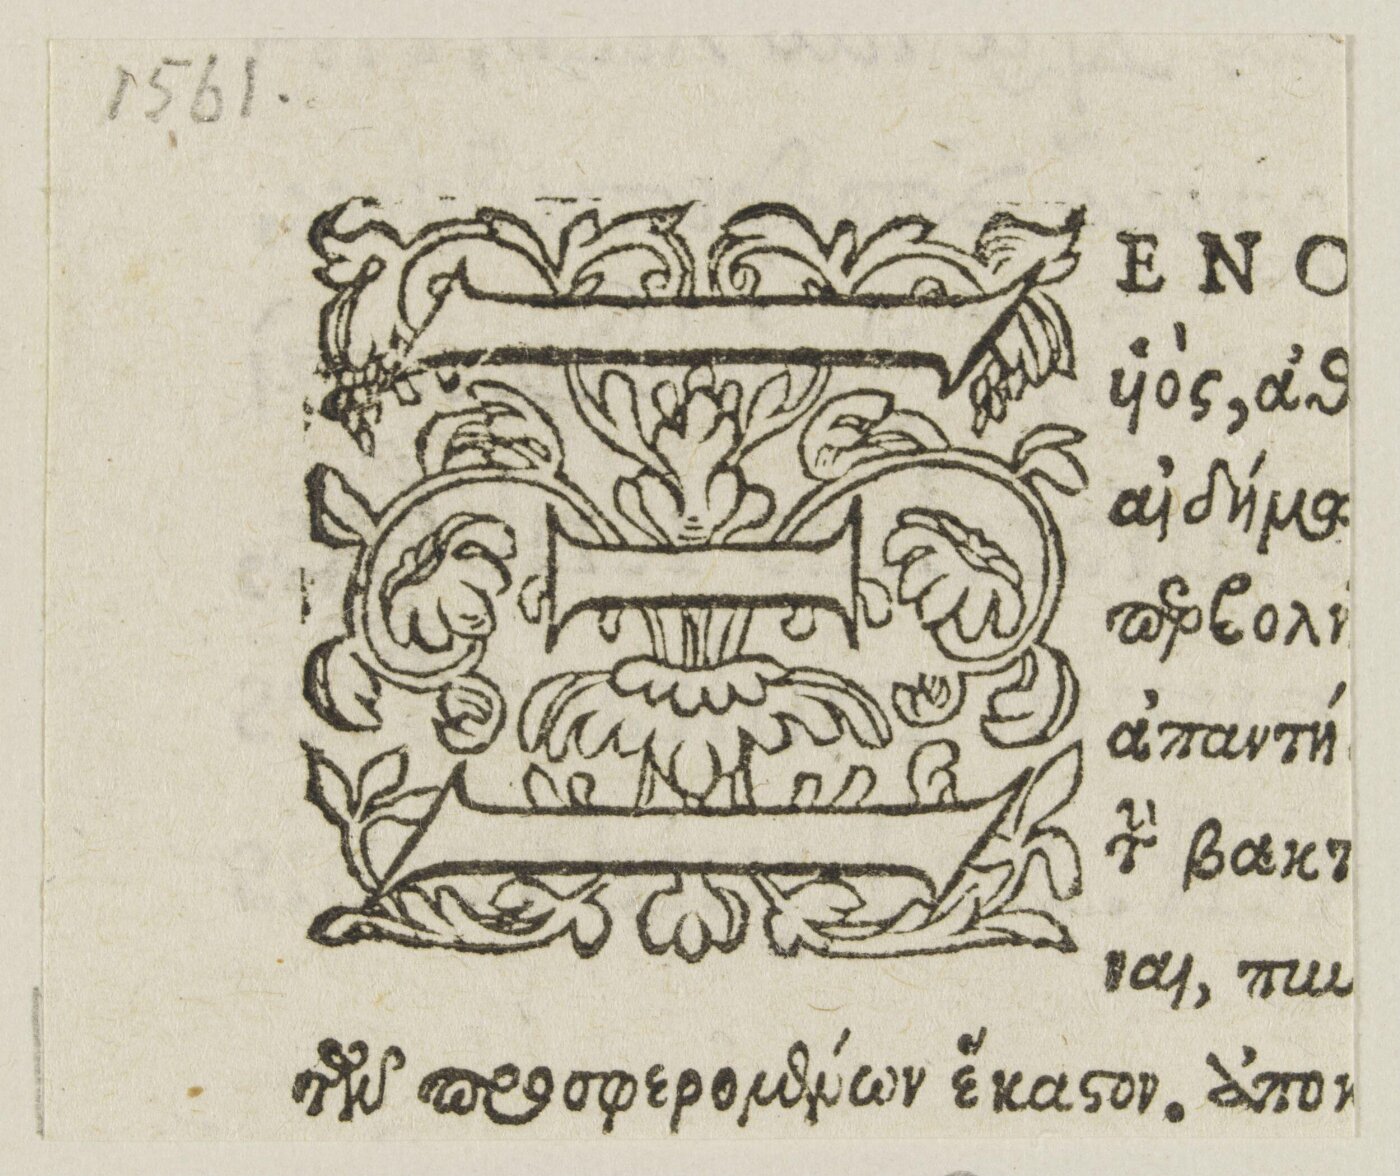 1561.
ΞΕΝΟ
ϋός, ἀθ
αιδήμο
προβολὴ
ἀπαντή
τῦ βακτ
ναι, πιν
τῶν προσφερομένων ἕκαστον. Ἀπον